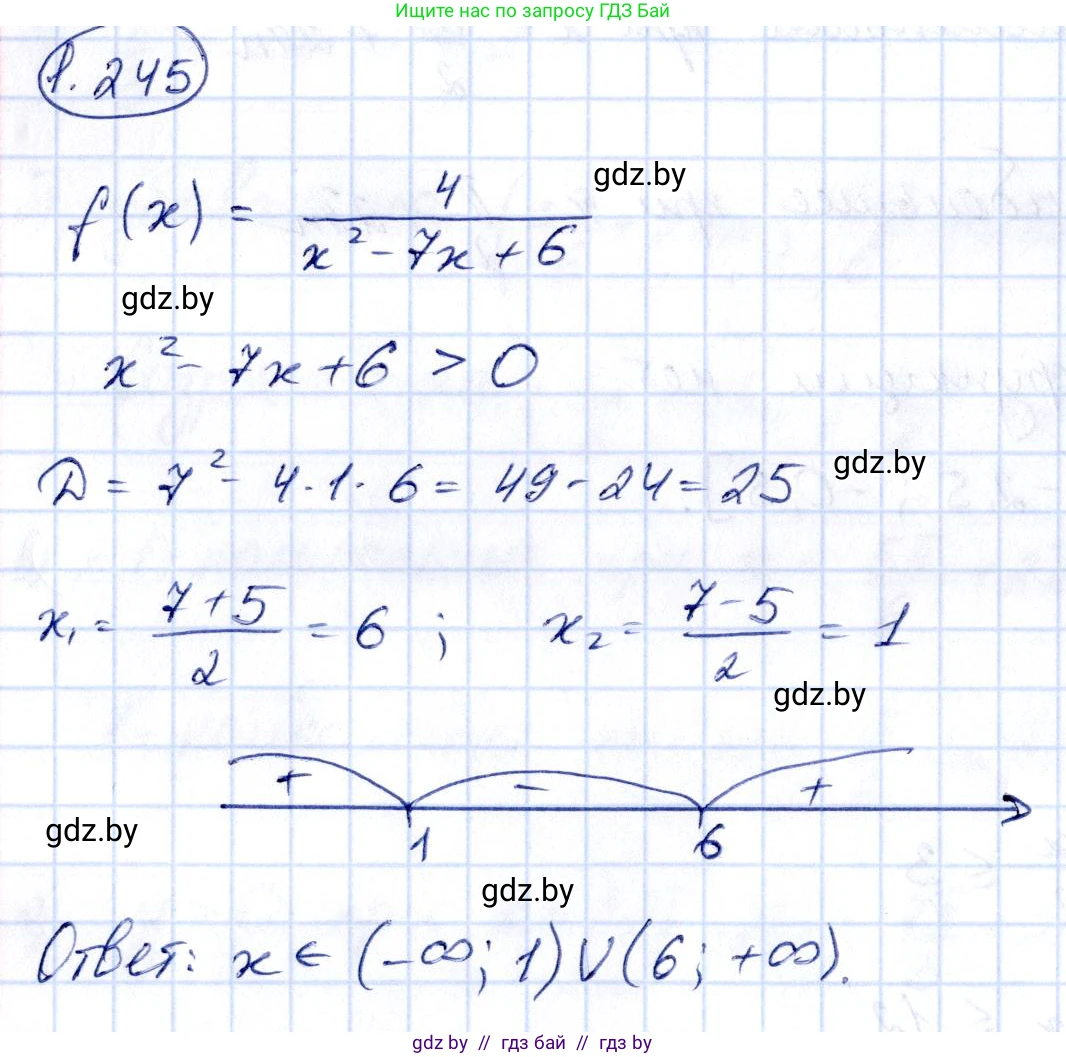 Ищите нас по запросу ГДЗ Бай
1.245
f(x) = 4 / (x² - 7x + 6)
gdz.by
gdz.by
x² - 7x + 6 > 0
D = 7² - 4·1·6 = 49 - 24 = 25
gdz.by
x₁ = (7+5)/2 = 6 ; x₂ = (7-5)/2 = 1
gdz.by
+ - +
1 6
gdz.by
gdz.by
Ответ: x ∈ (-∞; 1) ∪ (6; +∞).
gdz.by // гдз бай // gdz by